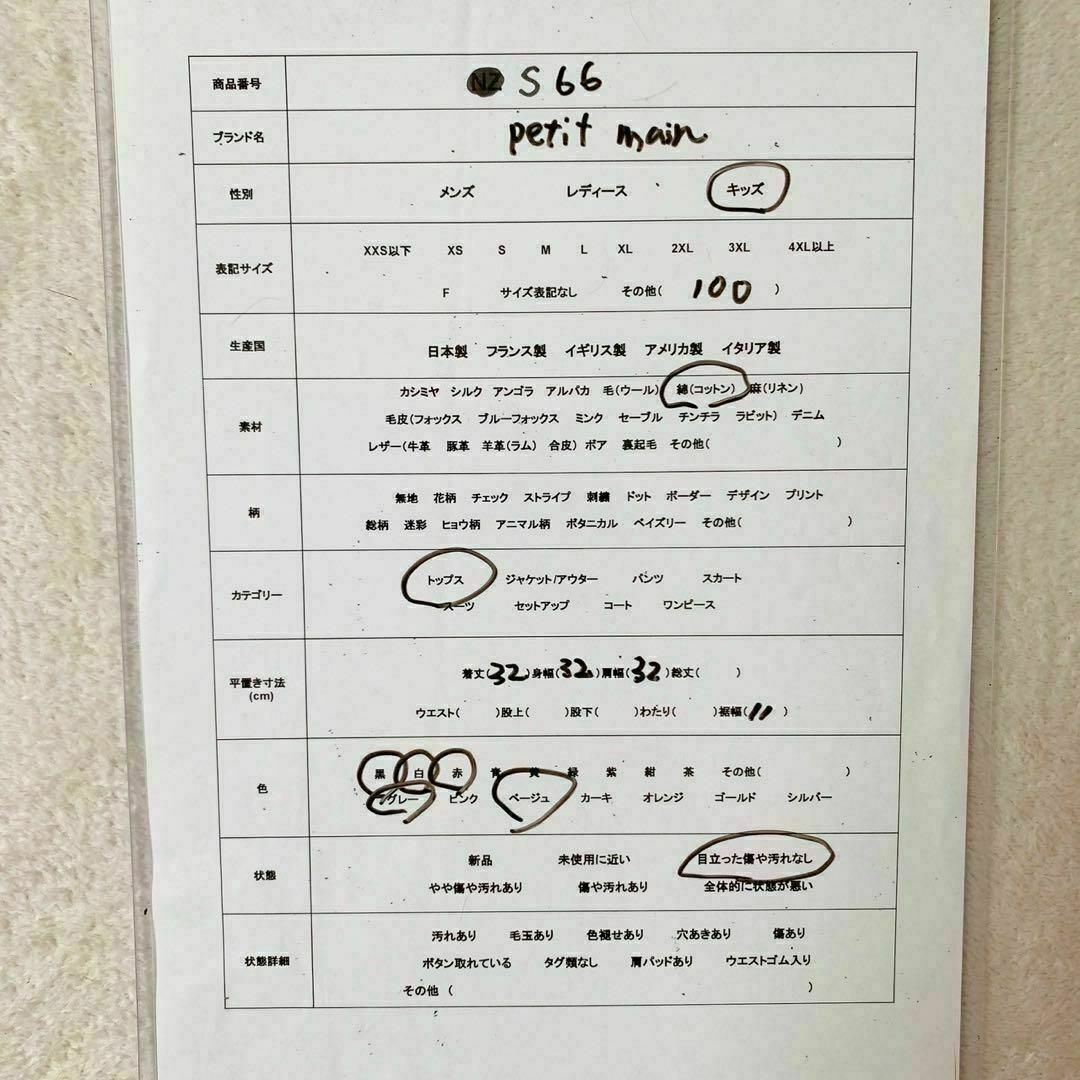 商品番号 NZ S 66
ブランド名 petit main
性別 メンズ レディース キッズ
表記サイズ
XXS以下 XS S M L XL 2XL 3XL 4XL以上
F サイズ表記なし その他( 100 )
生産国 日本製 フランス製 イギリス製 アメリカ製 イタリア製
素材
カシミヤ シルク アンゴラ アルパカ 毛(ウール) 綿(コットン) 麻(リネン)
毛皮(フォックス ブルーフォックス ミンク セーブル チンチラ ラビット) デニム
レザー(牛革 豚革 羊革(ラム) 合皮) ボア 裏起毛 その他( )
柄
無地 花柄 チェック ストライプ 刺繍 ドット ボーダー デザイン プリント
総柄 迷彩 ヒョウ柄 アニマル柄 ボタニカル ペイズリー その他( )
カテゴリー
トップス ジャケット/アウター パンツ スカート
スーツ セットアップ コート ワンピース
平置き寸法
(cm)
着丈(32)身幅(32)肩幅(32)総丈( )
ウエスト( )股上( )股下( )わたり( )裾幅(11 )
色
黒 白 赤 青 黄 緑 紫 紺 茶 その他( )
グレー ピンク ベージュ カーキ オレンジ ゴールド シルバー
状態
新品 未使用に近い 目立った傷や汚れなし
やや傷や汚れあり 傷や汚れあり 全体的に状態が悪い
状態詳細
汚れあり 毛玉あり 色褪せあり 穴あきあり 傷あり
ボタン取れている タグ類なし 肩パッドあり ウエストゴム入り
その他 ( )